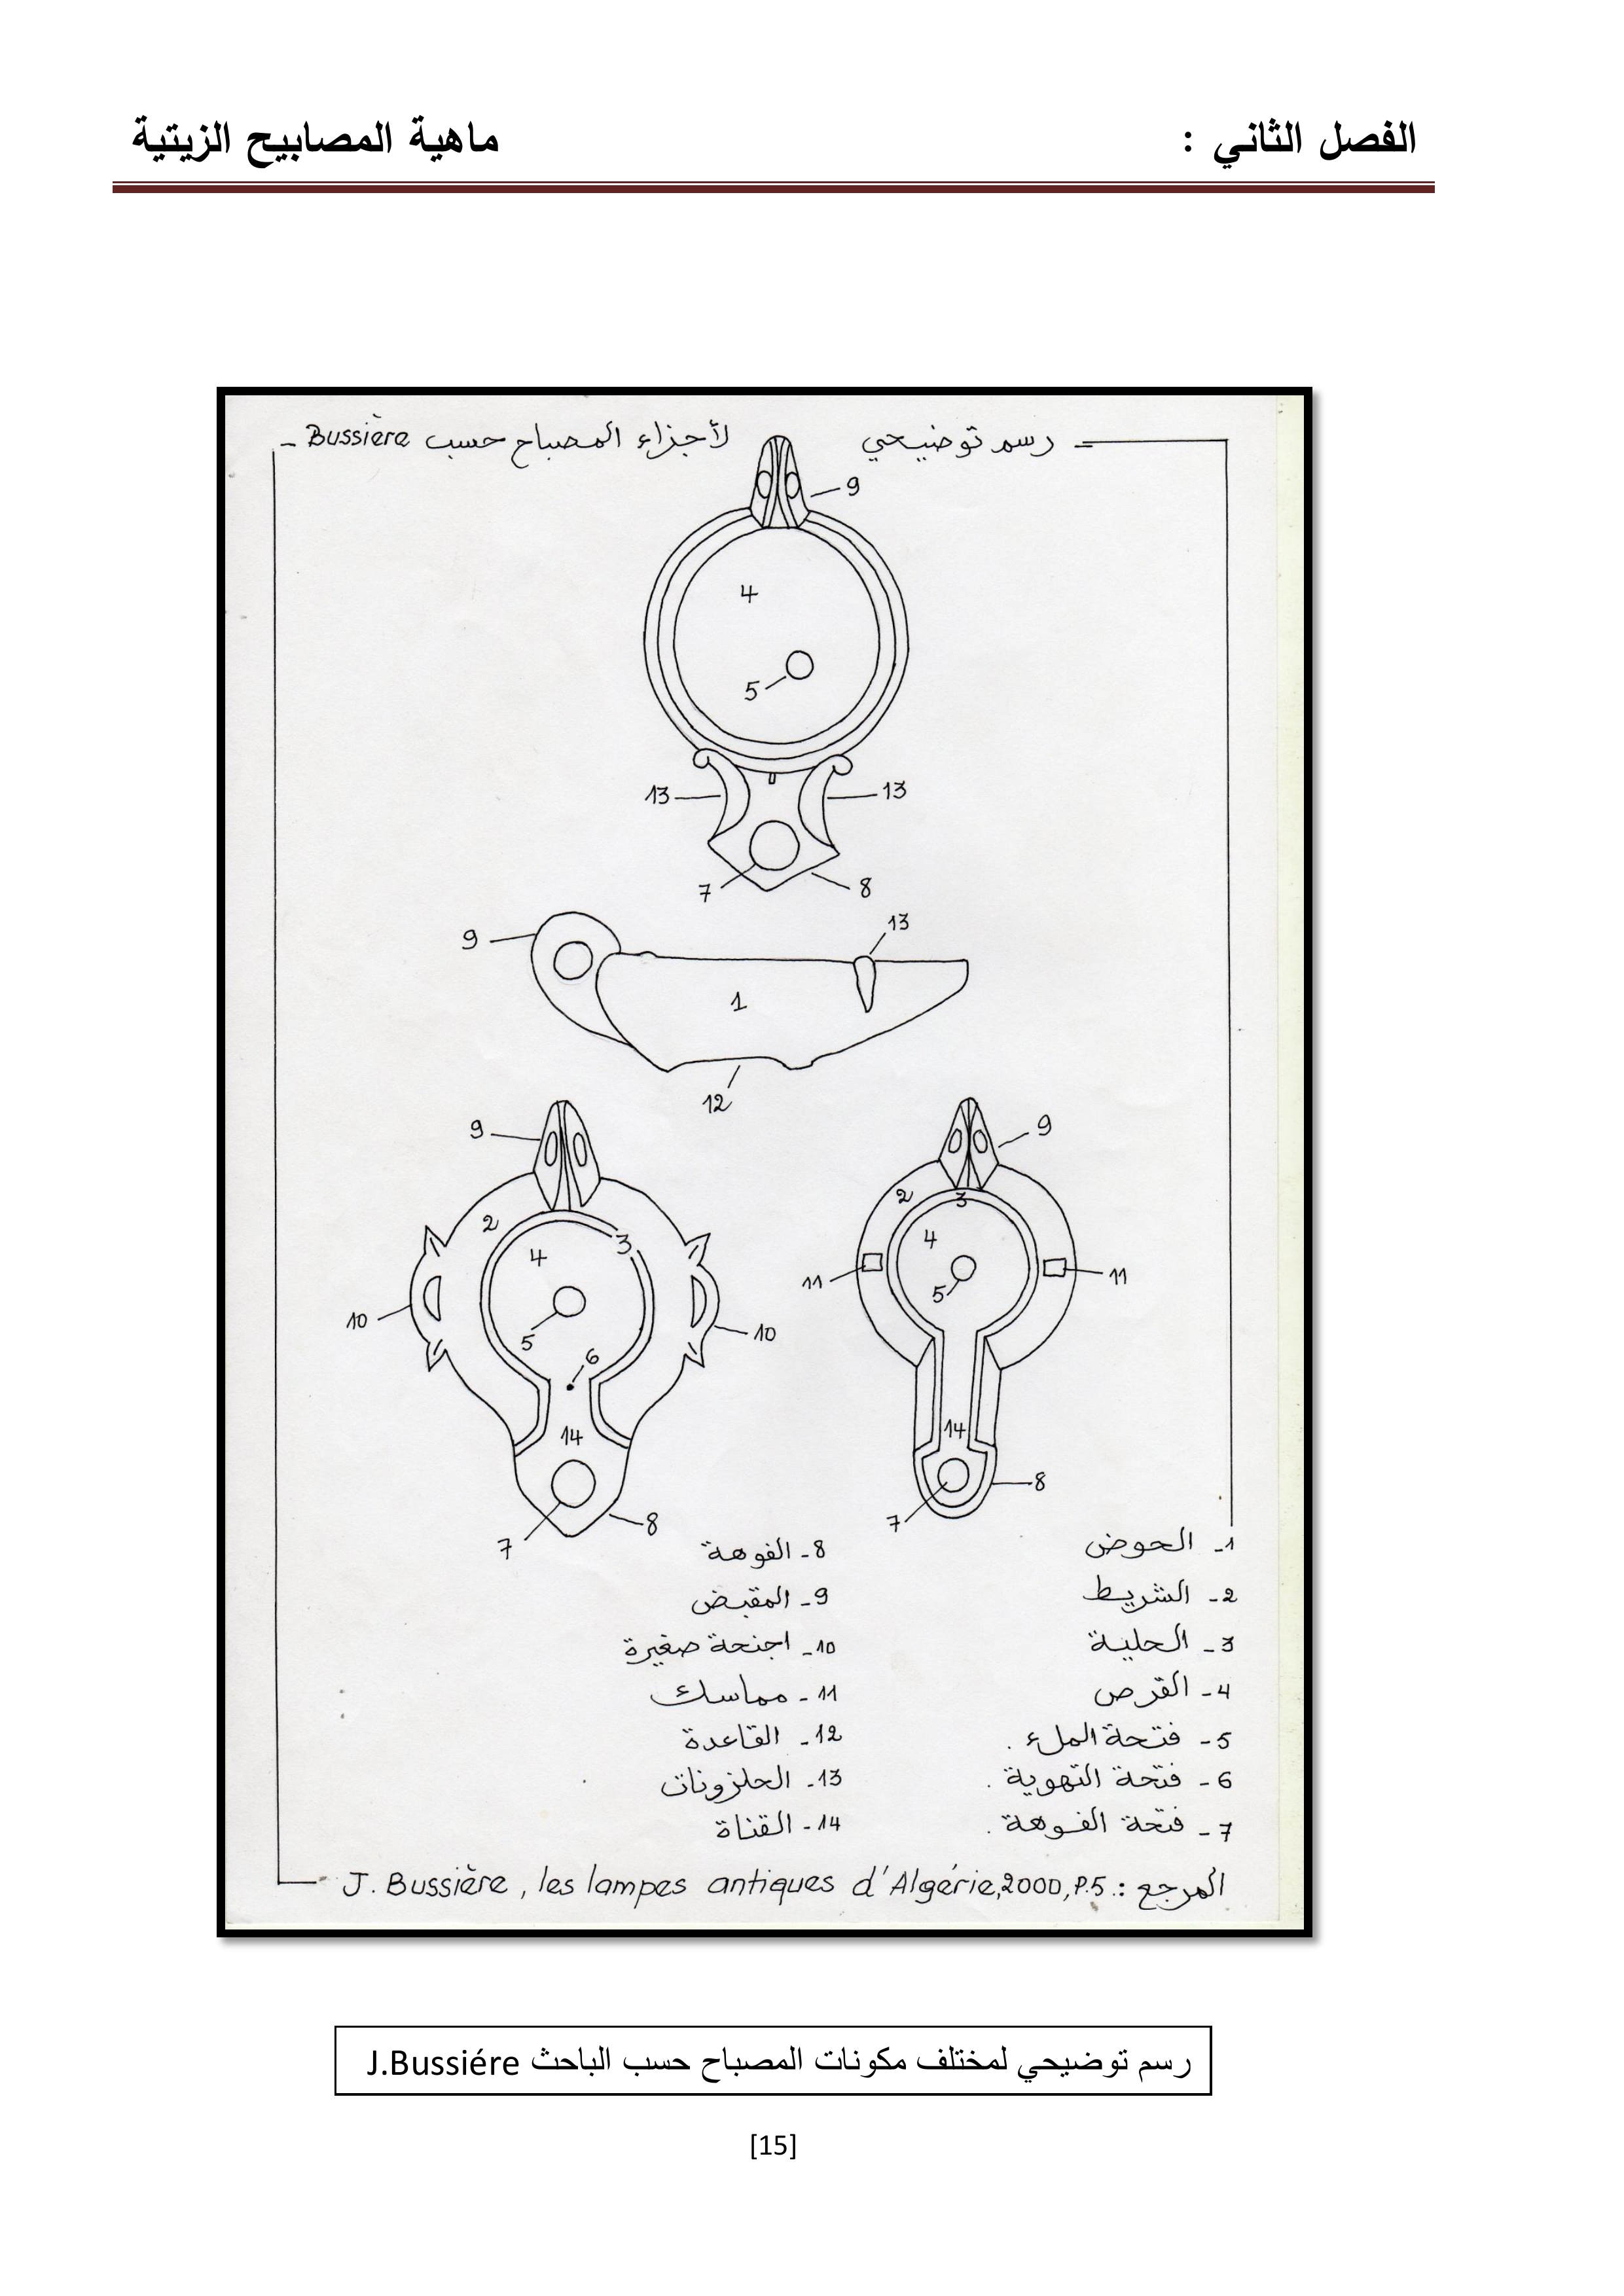 الفصل الثاني : ماهية المصابيح الزيتية
رسم توضيحي لأجزاء المصباح حسب Bussière
9
4
5
13 13
7 8
9 13
1
12
9 9
2 2 3
4 3 4
11 11
5
10 10
5 6
14 14
8
7 8
7
1- الحوض
2- الشريط
3- الحلية
4- القرص
5- فتحة الملء .
6- فتحة التهوية .
7- فتحة الفوهة .
8- الفوهة
9- المقبض
10- اجنحة صغيرة
11- مماسك
12- القاعدة
13- الحلزونات
14- القناة
المرجع : J. Bussière, les lampes antiques d'Algérie, 2000, P.5.
رسم توضيحي لمختلف مكونات المصباح حسب الباحث J.Bussiére
[15]